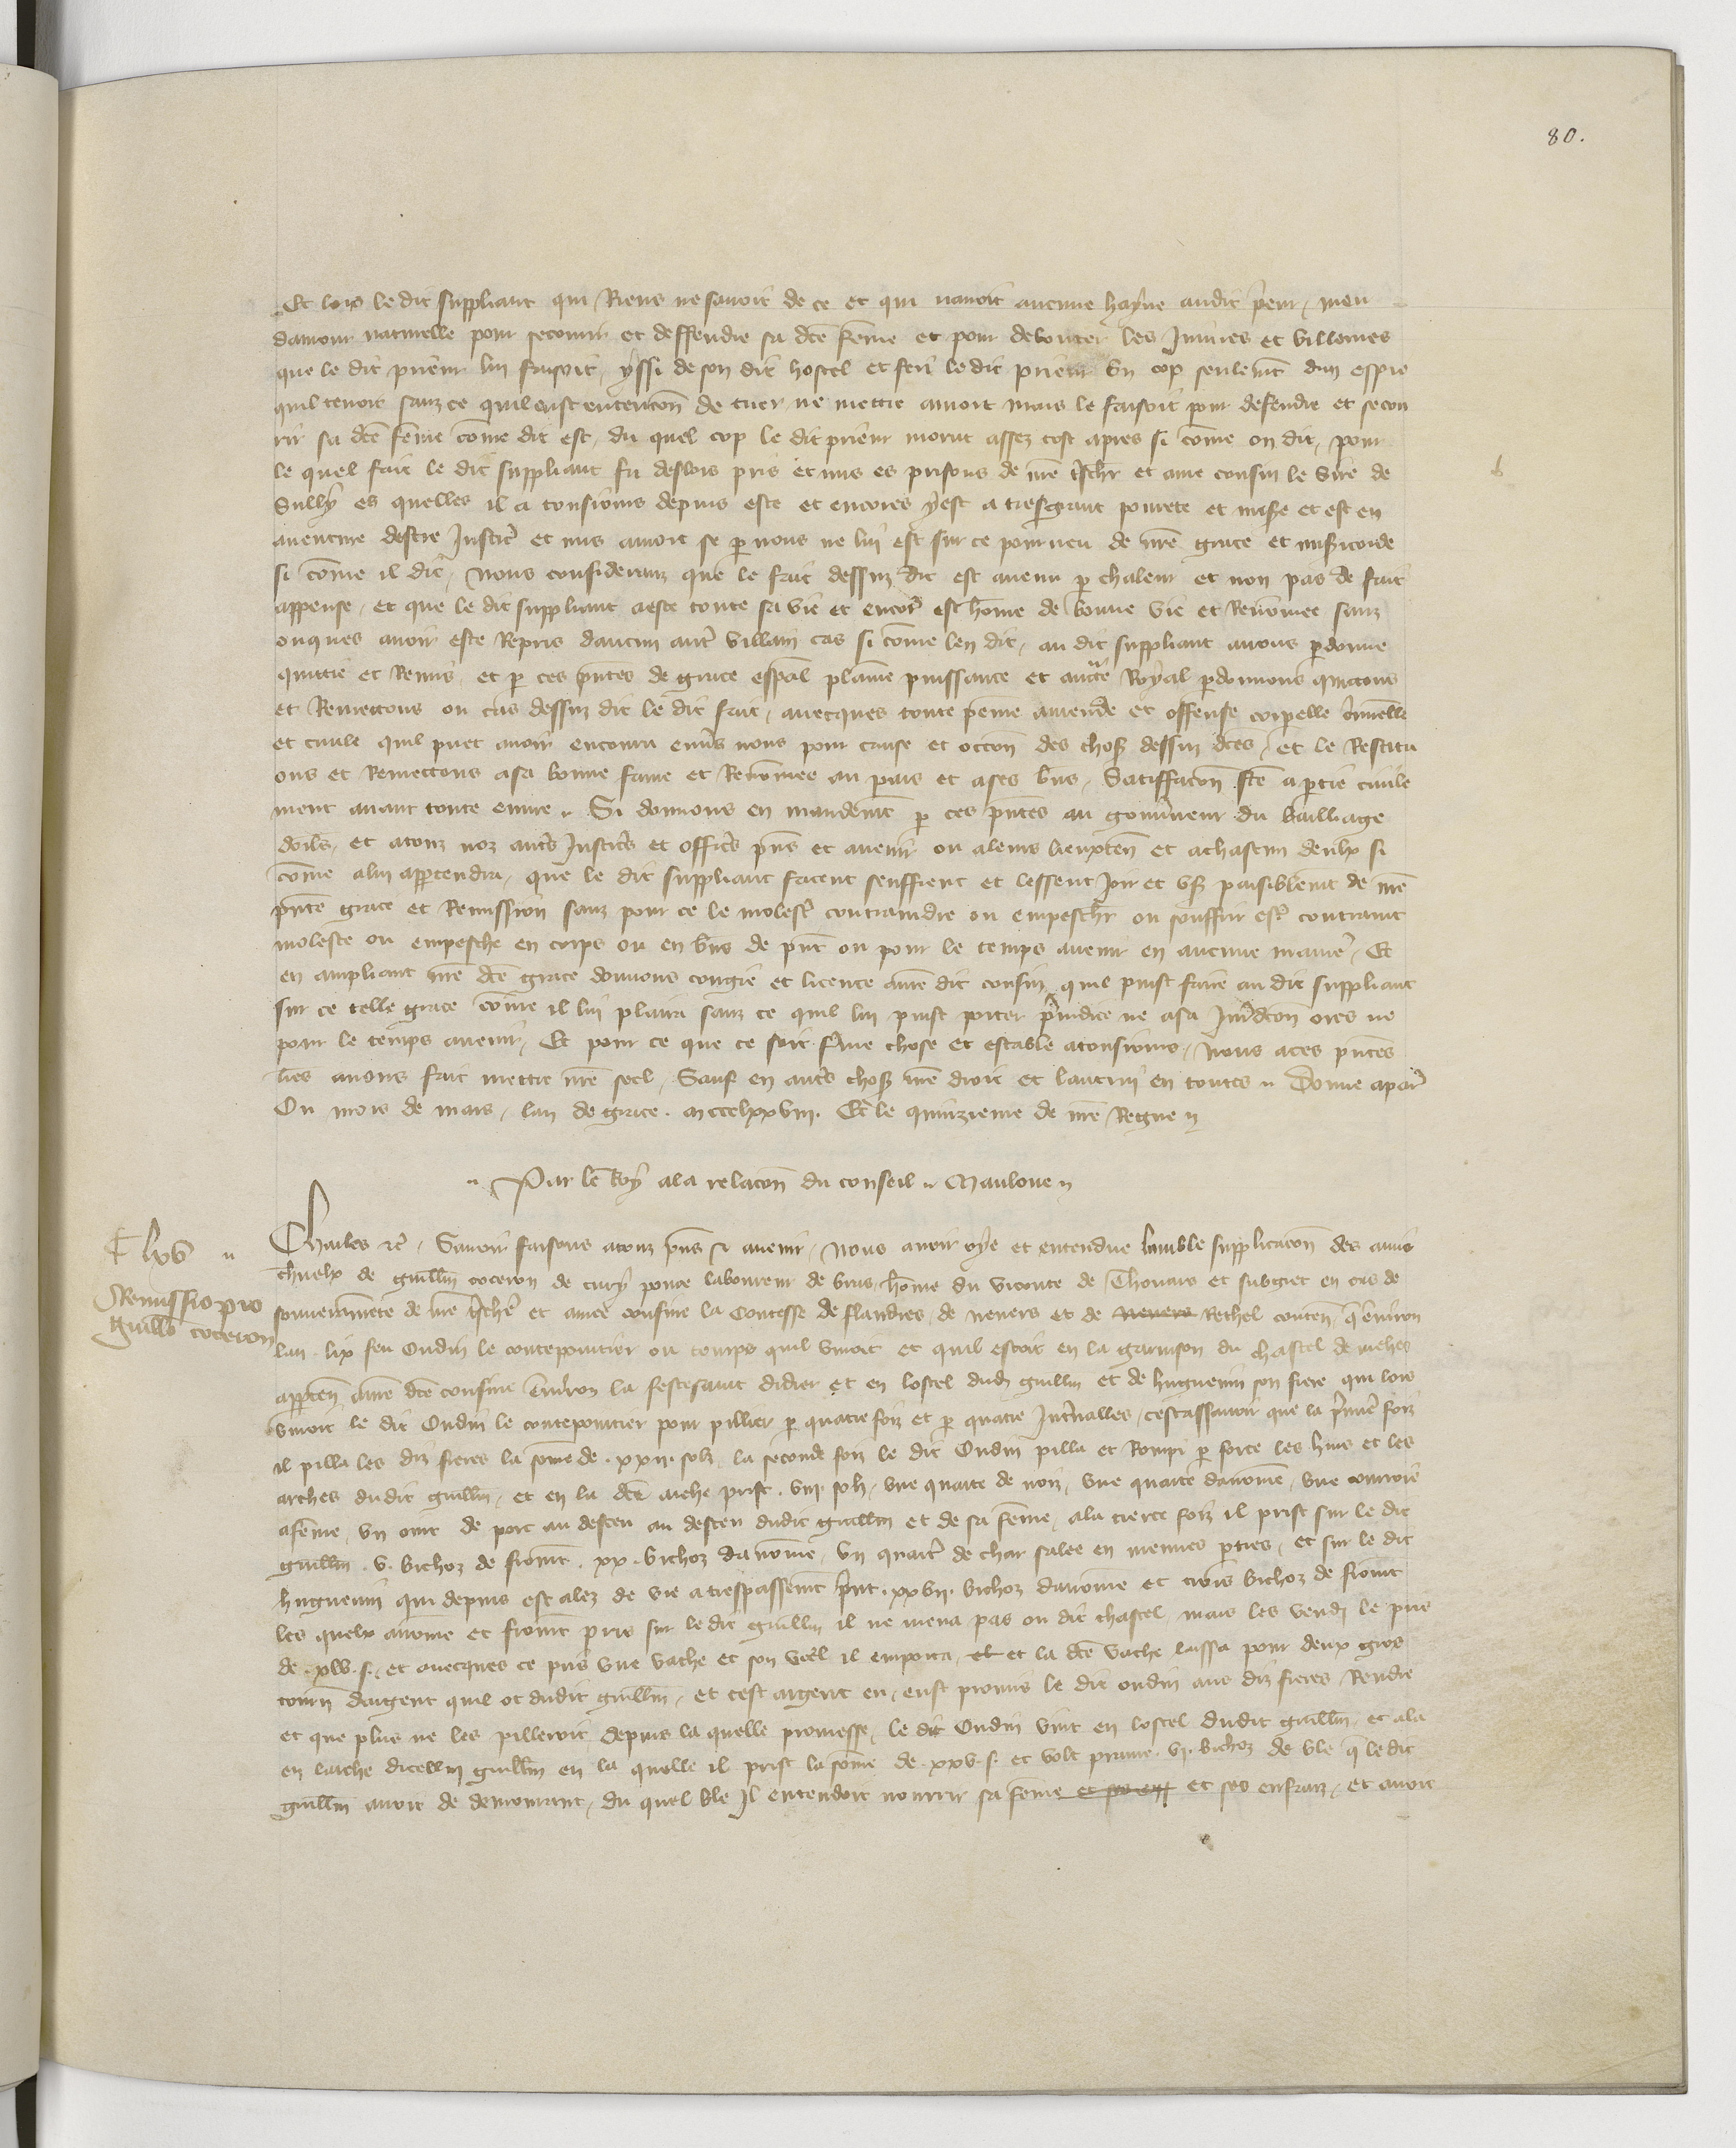 80.
Et lors le dit suppliant qui Riens ne savoit de ce et qui navoit aucune hayne audit prieur, meu
damour naturelle pour secourir et deffendre sa dce feme et pour debouter les Iniures et villenies
que le dit prieur lui faisoit, yssi de son dit hostel et feri le dit prieur un cop seulemt dun espie
quil tenoit sanz ce quil eust entencon de tuer ne mettre amort mais le faisoit pour defendre et secou
rir sa dce feme come dit est, du quel cop le dit prieur morut assez tost apres si come on dit, pour
le quel fait le dit suppliant fu deslors pris et mis es prisons de nre tschr et ame cousin le Sire de
Sully es quelles il a tousiours depuis este et encores yest a tresgrant povrete et mise et est en
aventure destre Justice et mis amort se p nous ne lui est sur ce pourveu de nre grace et misicorde
si come il dit, Nous considerans que le fait dessuz dit est avenu p chaleur et non pas de fait
appense, et que le dit suppliant aeste toute sa vie et encor est home de bonne vie et Renomee sanz
onques avoir este Repris daucun autre villain cas si come len dit, au dit suppliant avons pdonne
quittie et Remis, et p ces pntes de grace espal plaine puissance et aucte Royal pdonnons quittons
et Remettons ou cas dessuz dit le dit fait, avecques toute peine amende et offense corpelle criminelle
et civile quil puet avoir encouru envs nous pour cause et occon des choses dessuz dces, et le Restitu
ons et Remettons asa bonne fame et Renomee au pais et ases bns, Satisffacon fce a ptie civile
ment avant toute euvre. Si donnons en mandemt p ces pntes au gouvneur du bailliage
dorls, et atouz noz autres Justiciers et officiers pns et avenir ou aleurs lieuxten et achascun deulx si
come alui apptendra, que le dit suppliant facent seuffrent et lessent Joir et user paisiblemt de nre
pnte grace et Remission sanz pour ce le molester contraindre ou empescher ou souffrir estre contraint
moleste ou empesche en corps ou en bns de pnt ou pour le temps avenir en aucune maniere, Et
en ampliant nre dce grace donnons congie et licence anre dit cousin quil puist faire au dit suppliant
sur ce telle grace come il lui plaira sanz ce quil lui puist porter preiudice ne asa Juridicon ores ne
pour le temps avenir, Et pour ce que ce soit ferme chose et estable atousiours, Nous aces pntes
lres avons fait mettre nre seel, Sauf en autres choses nre droit et lautrui en toutes. Donne apar
Ou mois de mars, lan de grace. mccclxxviii. Et le quinzieme de nre Regne
Par le Roy ala relacon du conseil. Mauloue
lxv
Remissio pro
Guillo coceron
Charles etc. Savoir faisons atouz pns et avenir, Nous avoir oye et entendue lumble supplicacon des amis
charnelx de guillm coceron de cury povre laboureur de bras, home du viconte de Thouars et subget en cas de
souverainete de nre tschre et amee cousine la Contesse de flandres, de nevers et de nevers Rethel conten q environ
lan. lix feu Oudin le contepointier ou temps quil vivoit et quil estoit en la garnison du chastel de
appten anre dce cousine environ la feste saint didier et en lostel dudit guillm et de huguenin son frere qui lors
vivoit le dit Oudin le contepointier pour pillier p quatre foiz et p quatre Intervalles, cestassavoir que la premiere foiz
il pilla les diz freres la some de. xxii. solz, la seconde foiz le dit Oudin pilla et Rompi p force les huis et les
arches dudit guillm, et en la dce arche prist. viii. solz, une quarte de noiz, une quarte davoine, une courroie
afeme, un oint de porc au desceu au desceu dudit guillm et de sa feme, ala tierce foiz il prist sur le dit
guillm. v. bichoz de fromt. xx. bichoz davoine, un quartier de char salee en menues pties, et sur le dit
huguenin qui depuis est alez de vie a trespassemt print. xxvii. bichoz davoine et trois bichoz de fromt
les quelx avoine et fromt pris sur le dit guillm il ne mena pas ou dit chastel mais les vendi le pris
de. xlv. s. et avecques ce prist une vache et son veel il emporta, et et la dce vache laissa pour deux gros
tourn dargent quil ot dudit guillm, et cest argent eu, eust promis le dit oudin aus diz freres Rendre
et que plus ne les pilleroit, depuis la quelle promesse, le dit Oudin vint en lostel dudit guillm, et ala
en larche dicellui guillm en la quelle il prist la some de. xxv. s. et volt prenre. vi. bichoz de ble q ledit
guillm avoit de demourant, du quel ble Il entendoit nourrir sa feme et ses enf et ses enfanz, et avoit